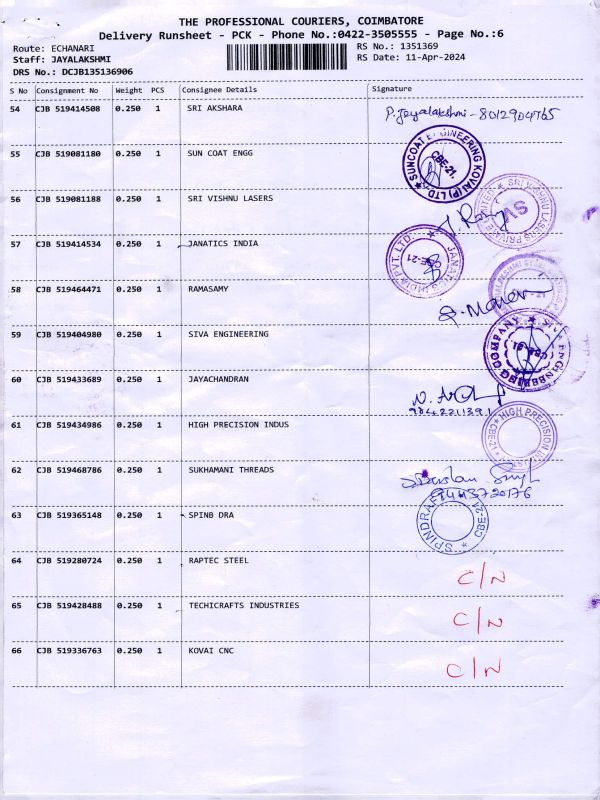 THE PROFESSIONAL COURIERS, COIMBATORE
Delivery Runsheet - PCK - Phone No.:0422-3505555 - Page No.:6
Route: ECHANARI
Staff: JAYALAKSHMI
DRS No.: DCJB135136906
RS No.: 1351369
RS Date: 11-Apr-2024
S No Consignment No Weight PCS Consignee Details Signature
54 CJB 519414508 0.250 1 SRI AKSHARA P. Jeyalakshmi - 8012904765
55 CJB 519081180 0.250 1 SUN COAT ENGG
SUNCOAT ENGINEERING KOVAI (P) LTD
CBE-21.
56 CJB 519081188 0.250 1 SRI VISHNU LASERS
SRI VISHNU LASERS PRIVATE
SV
57 CJB 519414534 0.250 1 JANATICS INDIA
JANATICS INDIA PVT. LTD.
CBE-21
58 CJB 519464471 0.250 1 RAMASAMY
59 CJB 519404980 0.250 1 SIVA ENGINEERING
SIVA ENGINEERING COMPANY
CBE-21
60 CJB 519433689 0.250 1 JAYACHANDRAN
61 CJB 519434986 0.250 1 HIGH PRECISION INDUS
HIGH PRECISION
CBE-21
62 CJB 519468786 0.250 1 SUKHAMANI THREADS
Singh
63 CJB 519365148 0.250 1 SPINB DRA
SPINDRA
CBE-21
64 CJB 519280724 0.250 1 RAPTEC STEEL C/N
65 CJB 519428488 0.250 1 TECHICRAFTS INDUSTRIES C/N
66 CJB 519336763 0.250 1 KOVAI CNC C/N